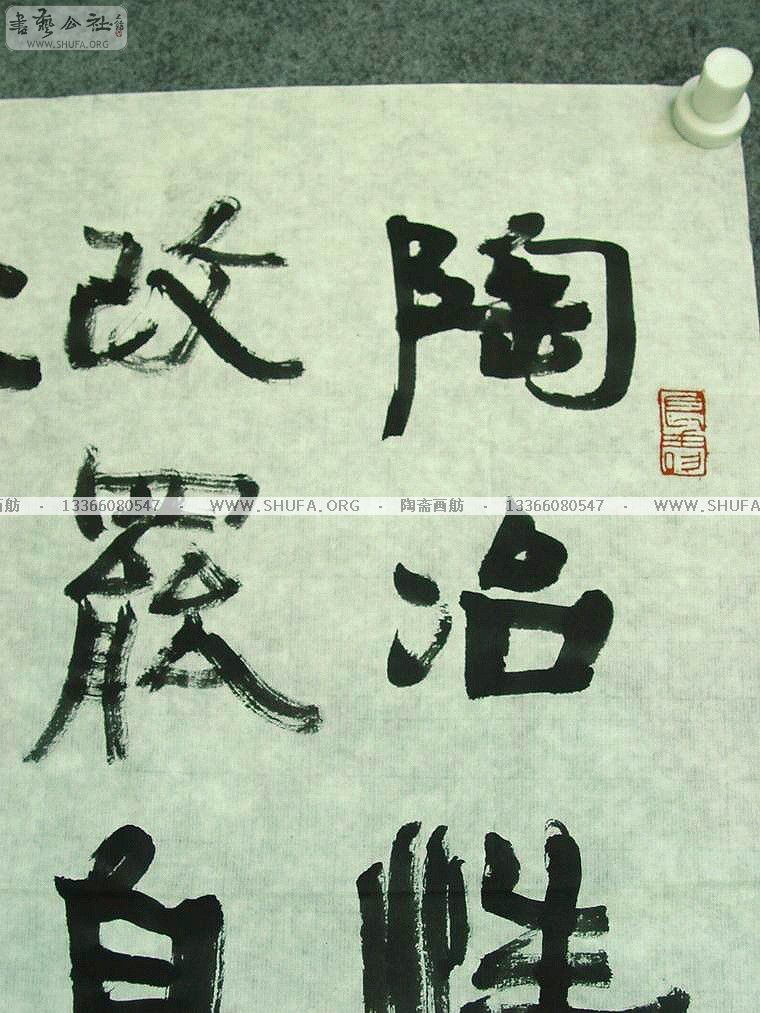 書藝公社
WWW.SHUFA.ORG
陶冶性
改罷自
画舫 · 13366080547 · WWW.SHUFA.ORG · 陶斋画舫 · 13366080547 · WWW.SHUFA